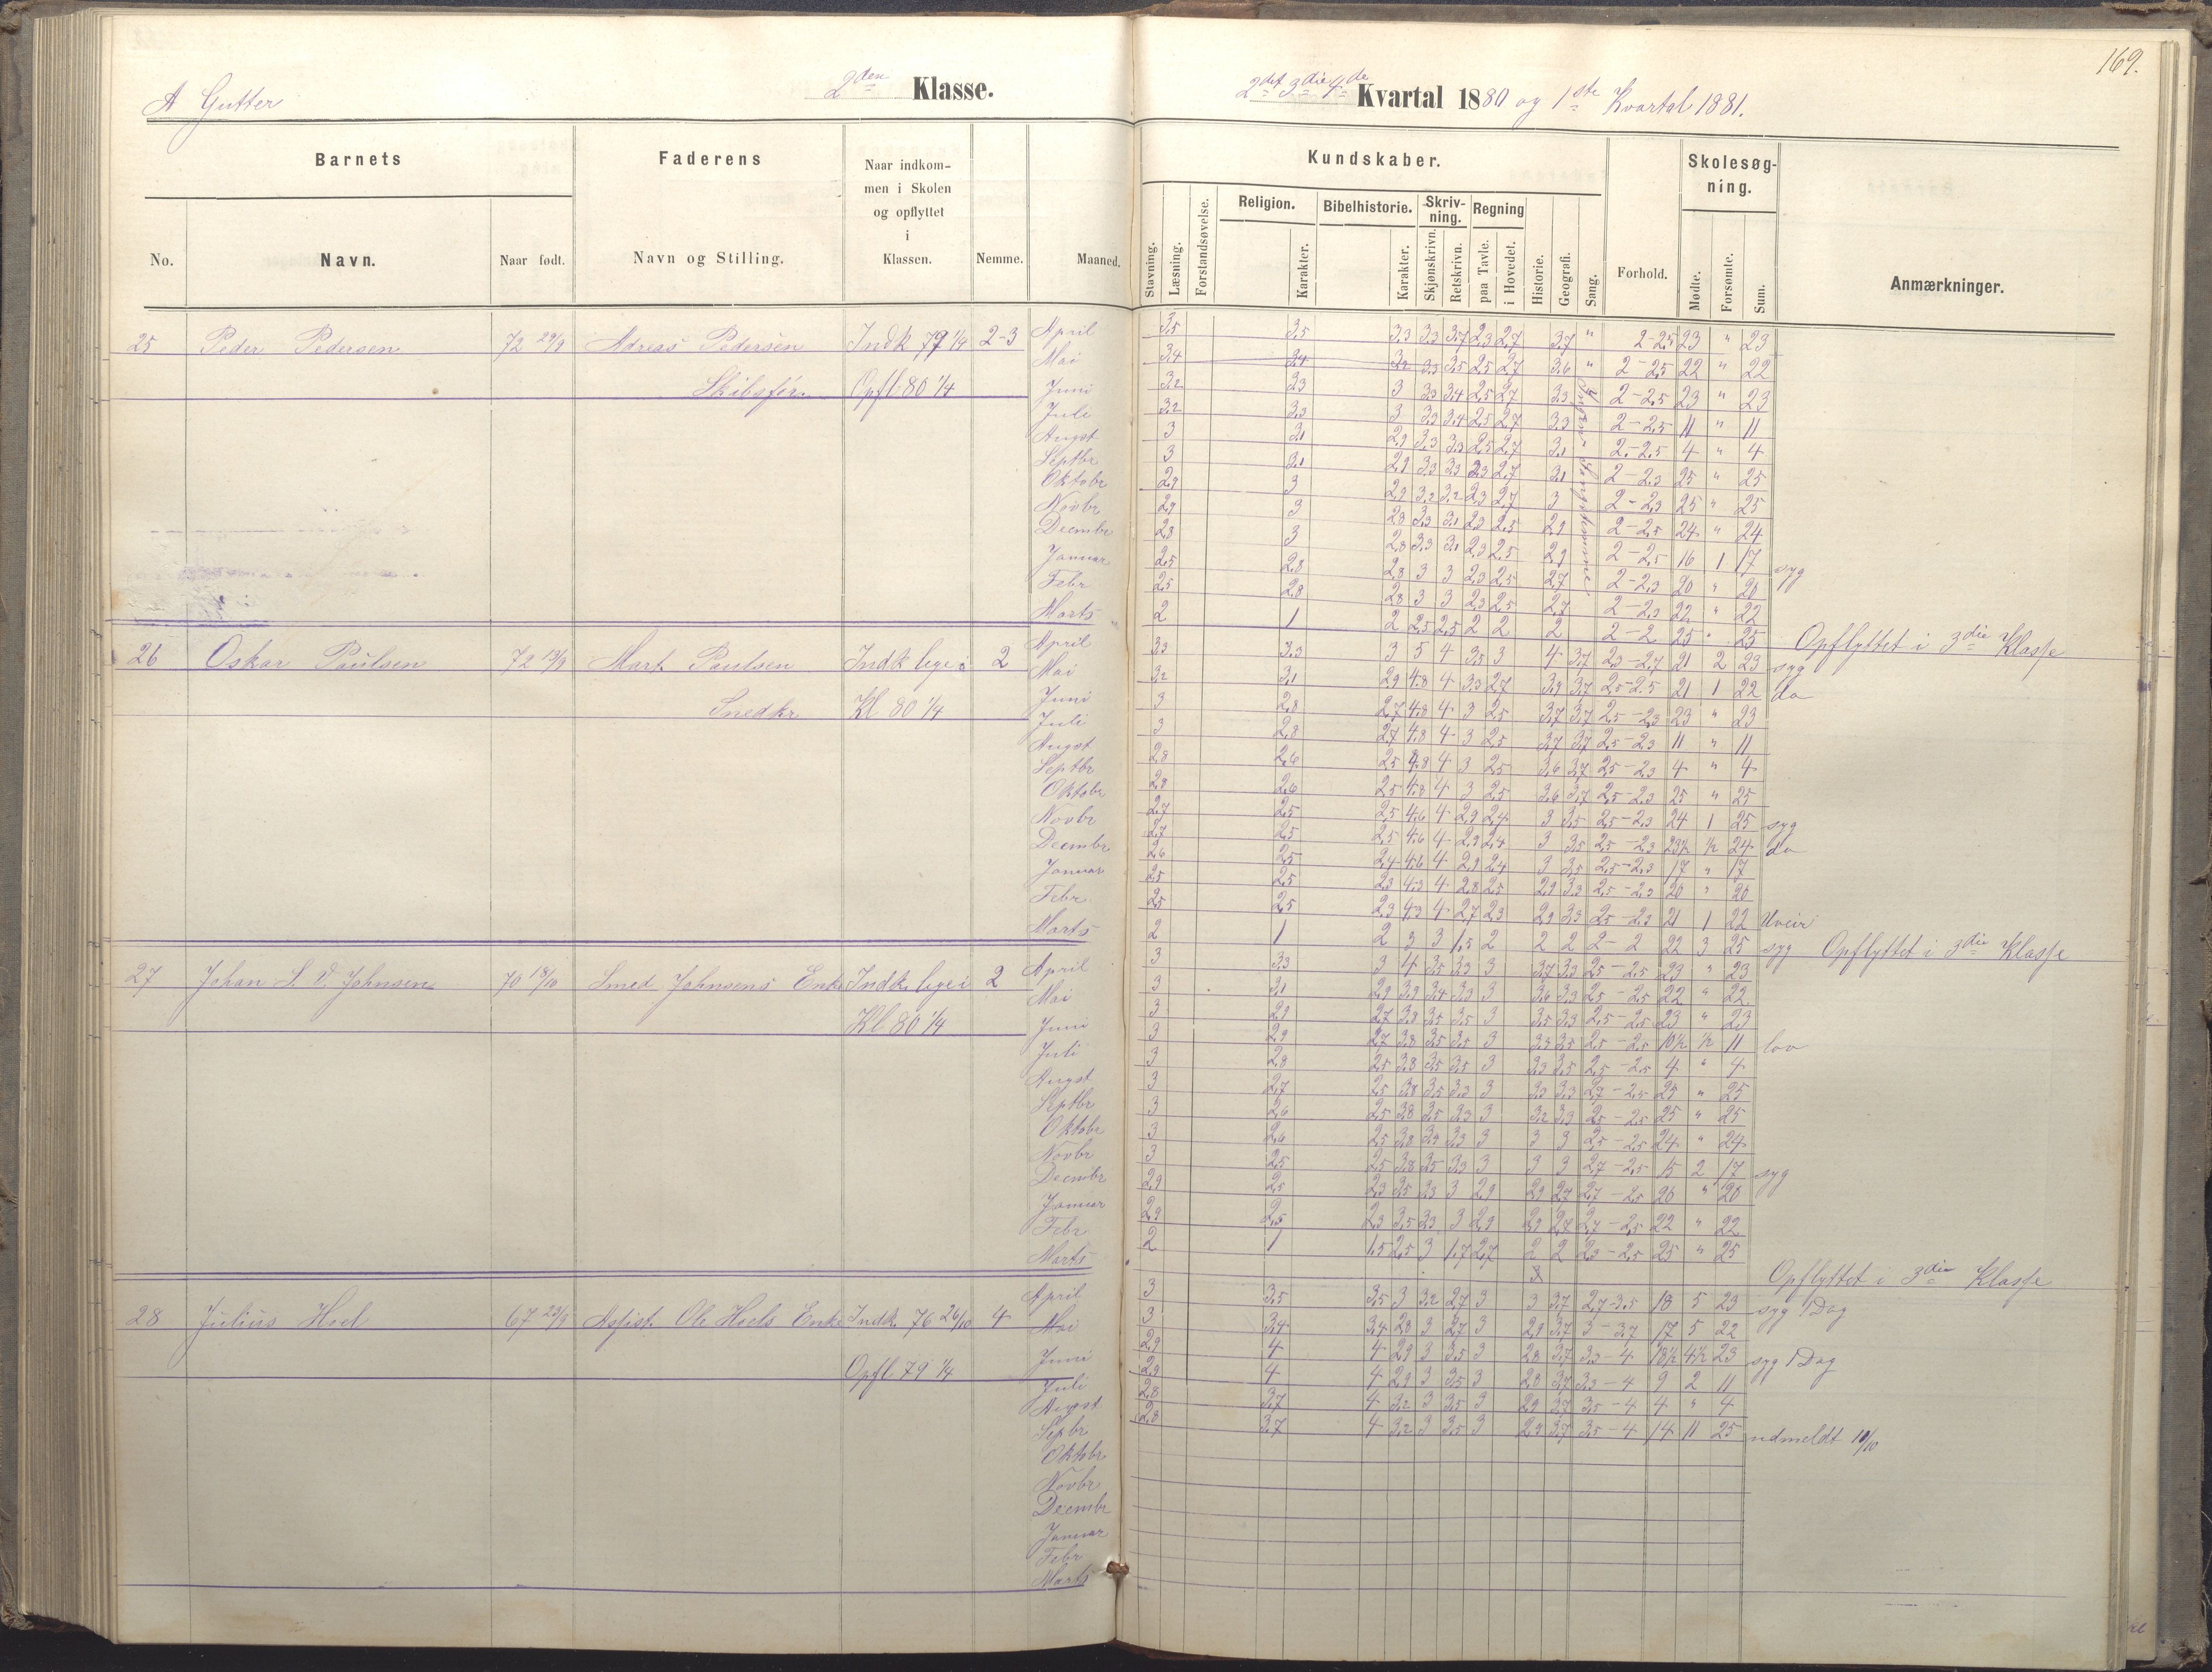 169.
A Gutter
2den Klasse.
2det 3die 4de Kvartal 1880 og 1ste Kvartal 1881.
Barnets
Faderens
Naar indkom-
men i Skolen
og opflyttet
i
Klassen.
No.
Navn.
Naar født.
Navn og Stilling.
Nemme.
Maaned.
Kundskaber.
Skolesøg-
ning.
Stavning.
Læsning.
Forstandsøvelse.
Religion.
Karakter.
Bibelhistorie.
Karakter.
Skriv-
ning.
Skjønskrivn.
Retskrivn.
Regning
paa Tavle.
i Hovedet.
Historie.
Geografi.
Sang.
Forhold.
Mødte.
Forsømte.
Sum.
Anmærkninger.
25 Peder Pedersen 72 29/9 Adreas Pedersen Indk 79 1/4 2-3
Skibsfør. Opfl 80 1/4
April 3,5 3,5 3,3 3,3 3,7 2,3 2,7 3,7 " 2-2,5 23 " 23
Mai 3,4 3,4 3,2 3,3 3,5 2,5 2,7 3,6 " 2-2,5 22 " 22
Juni 3,2 3,3 3 3,3 3,4 2,5 2,7 3,3 2-2,5 23 " 23
Juli 3,2 3,3 3 3,3 3,4 2,5 2,7 3,3 2-2,5 11 " 11
Augst 3 3,1 2,9 3,3 3,3 2,5 2,7 3,1 2-2,5 4 " 4
Septbr 3 3,1 2,9 3,3 3,3 2,3 2,7 3,1 2-2,3 25 " 25
Oktobr 2,9 3 2,9 3,2 3,2 2,3 2,7 3 2-2,3 25 " 25
Novbr 2,9 3 2,8 3,3 3,1 2,3 2,5 2,9 2-2,5 24 " 24
Decmbr 2,8 3 2,8 3,3 3,1 2,3 2,5 2,9 2-2,5 16 1 17 syg
Januar 2,5 2,8 2,8 3 3 2,3 2,5 2,7 2-2,3 20 " 20
Febr 2,5 2,8 2,8 3 3 2,3 2,5 2,7 2-2,3 22 " 22
Marts 2 1 2 2,5 2,5 2 2 2 2-2 25 " 25 Opflyttet i 3die Klasse
26 Oskar Paulsen 72 13/9 Mart. Paulsen Indk lige i 2
Snedkr Kl 80 1/4
April 3,3 3,3 3 5 4 3,5 3 4 3,7 2,3-2,7 21 2 23 syg
Mai 3,2 3,1 2,9 4,8 4 3,3 2,7 3,9 3,7 2,5-2,5 21 1 22 do
Juni 3 2,8 2,7 4,8 4 3 2,5 3,7 3,7 2,5-2,3 23 " 23
Juli 3 2,8 2,7 4,8 4 3 2,5 3,7 3,7 2,5-2,3 11 " 11
Augst 2,8 2,6 2,5 4,8 4 3 2,5 3,6 3,7 2,5-2,3 4 " 4
Septbr 2,8 2,6 2,5 4,8 4 3 2,5 3,6 3,7 2,5-2,3 25 " 25
Oktobr 2,7 2,5 2,5 4,6 4 2,9 2,4 3 3,5 2,5-2,3 24 1 25 syg
Novbr 2,7 2,5 2,5 4,6 4 2,9 2,4 3 3,5 2,5-2,3 23½ ½ 24 do
Decmbr 2,6 2,5 2,4 4,6 4 2,9 2,4 3 3,5 2,5-2,3 17 " 17
Januar 2,5 2,5 2,3 4,3 4 2,8 2,5 2,9 3,3 2,5-2,3 20 " 20
Febr 2,5 2,5 2,3 4,3 4 2,7 2,3 2,9 3,3 2,5-2,3 21 1 22 Uveir
Marts 2 1 2 3 3 1,5 2 2 2 2-2 22 3 25 syg Opflyttet i 3die Klasse
27 Johan L. V. Johnsen 70 18/10 Smed Johnsens Enke Indk. lige i 2
Kl. 80 1/4
April 3 3,3 3 4 3,5 3,3 3 3,7 3,3 2,5-2,5 23 " 23
Mai 3 3,1 2,9 3,9 3,4 3,3 3 3,6 3,3 2,5-2,5 22 " 22
Juni 3 2,9 2,7 3,9 3,5 3,5 3 3,5 3,3 2,5-2,5 23 " 23
Juli 3 2,9 2,7 3,8 3,5 3,5 3 3,3 3,5 2,5-2,5 10½ ½ 11 lov
Augst 3 2,8 2,5 3,8 3,5 3,5 3 3,3 3,5 2,5-2,5 4 " 4
Septbr 3 2,7 2,5 3,8 3,5 3,3 3 3,3 3,3 2,7-2,5 25 " 25
Oktobr 3 2,6 2,5 3,8 3,5 3,3 3 3,2 3,3 2,5-2,5 25 " 25
Novbr 3 2,6 2,5 3,8 3,5 3,3 3 3 3 2,5-2,5 24 " 24
Decmbr 3 2,5 2,5 3,8 3,5 3,3 3 3 3 2,7-2,5 15 2 17 syg
Januar 2,9 2,5 2,3 3,5 3,3 3 2,9 2,9 2,7 2,7-2,5 20 " 20
Febr 2,9 2,5 2,3 3,5 3,3 3 2,9 2,9 2,7 2,7-2,5 22 " 22
Marts 2 1 1,5 2,5 3 1,7 2,7 2 2 2,3-2,5 25 " 25
Opflyttet i 3die Klasse
28 Julius Hoel 67 23/9 Assist. Ole Hoels Enke Indk. 76 26/10 4
Opfl 79 1/4
April 3 3,5 3,5 3 3,2 2,7 3 3 3,7 2,7-3,5 18 5 23 syg 1 Dag
Mai 3 3,4 3,4 2,8 3 2,7 3 2,9 3,7 3-3,7 17 5 22
Juni 2,9 4 4 2,9 3 3,5 3 2,8 3,7 3,3-4 18½ 4½ 23 syg 1 Dag
Juli 2,9 4 4 2,9 3 3,5 3 2,8 3,7 3,3-4 9 2 11
Augst 2,8 3,7 4 3,2 3 3,5 3 2,9 3,7 3,5-4 4 " 4
Sepbr 2,8 3,7 4 3,2 3 3,5 3 2,9 3,7 3,5-4 14 11 25 udmeldt 11/10
Oktobr
Novbr
Decmbr
Januar
Febr
Marts